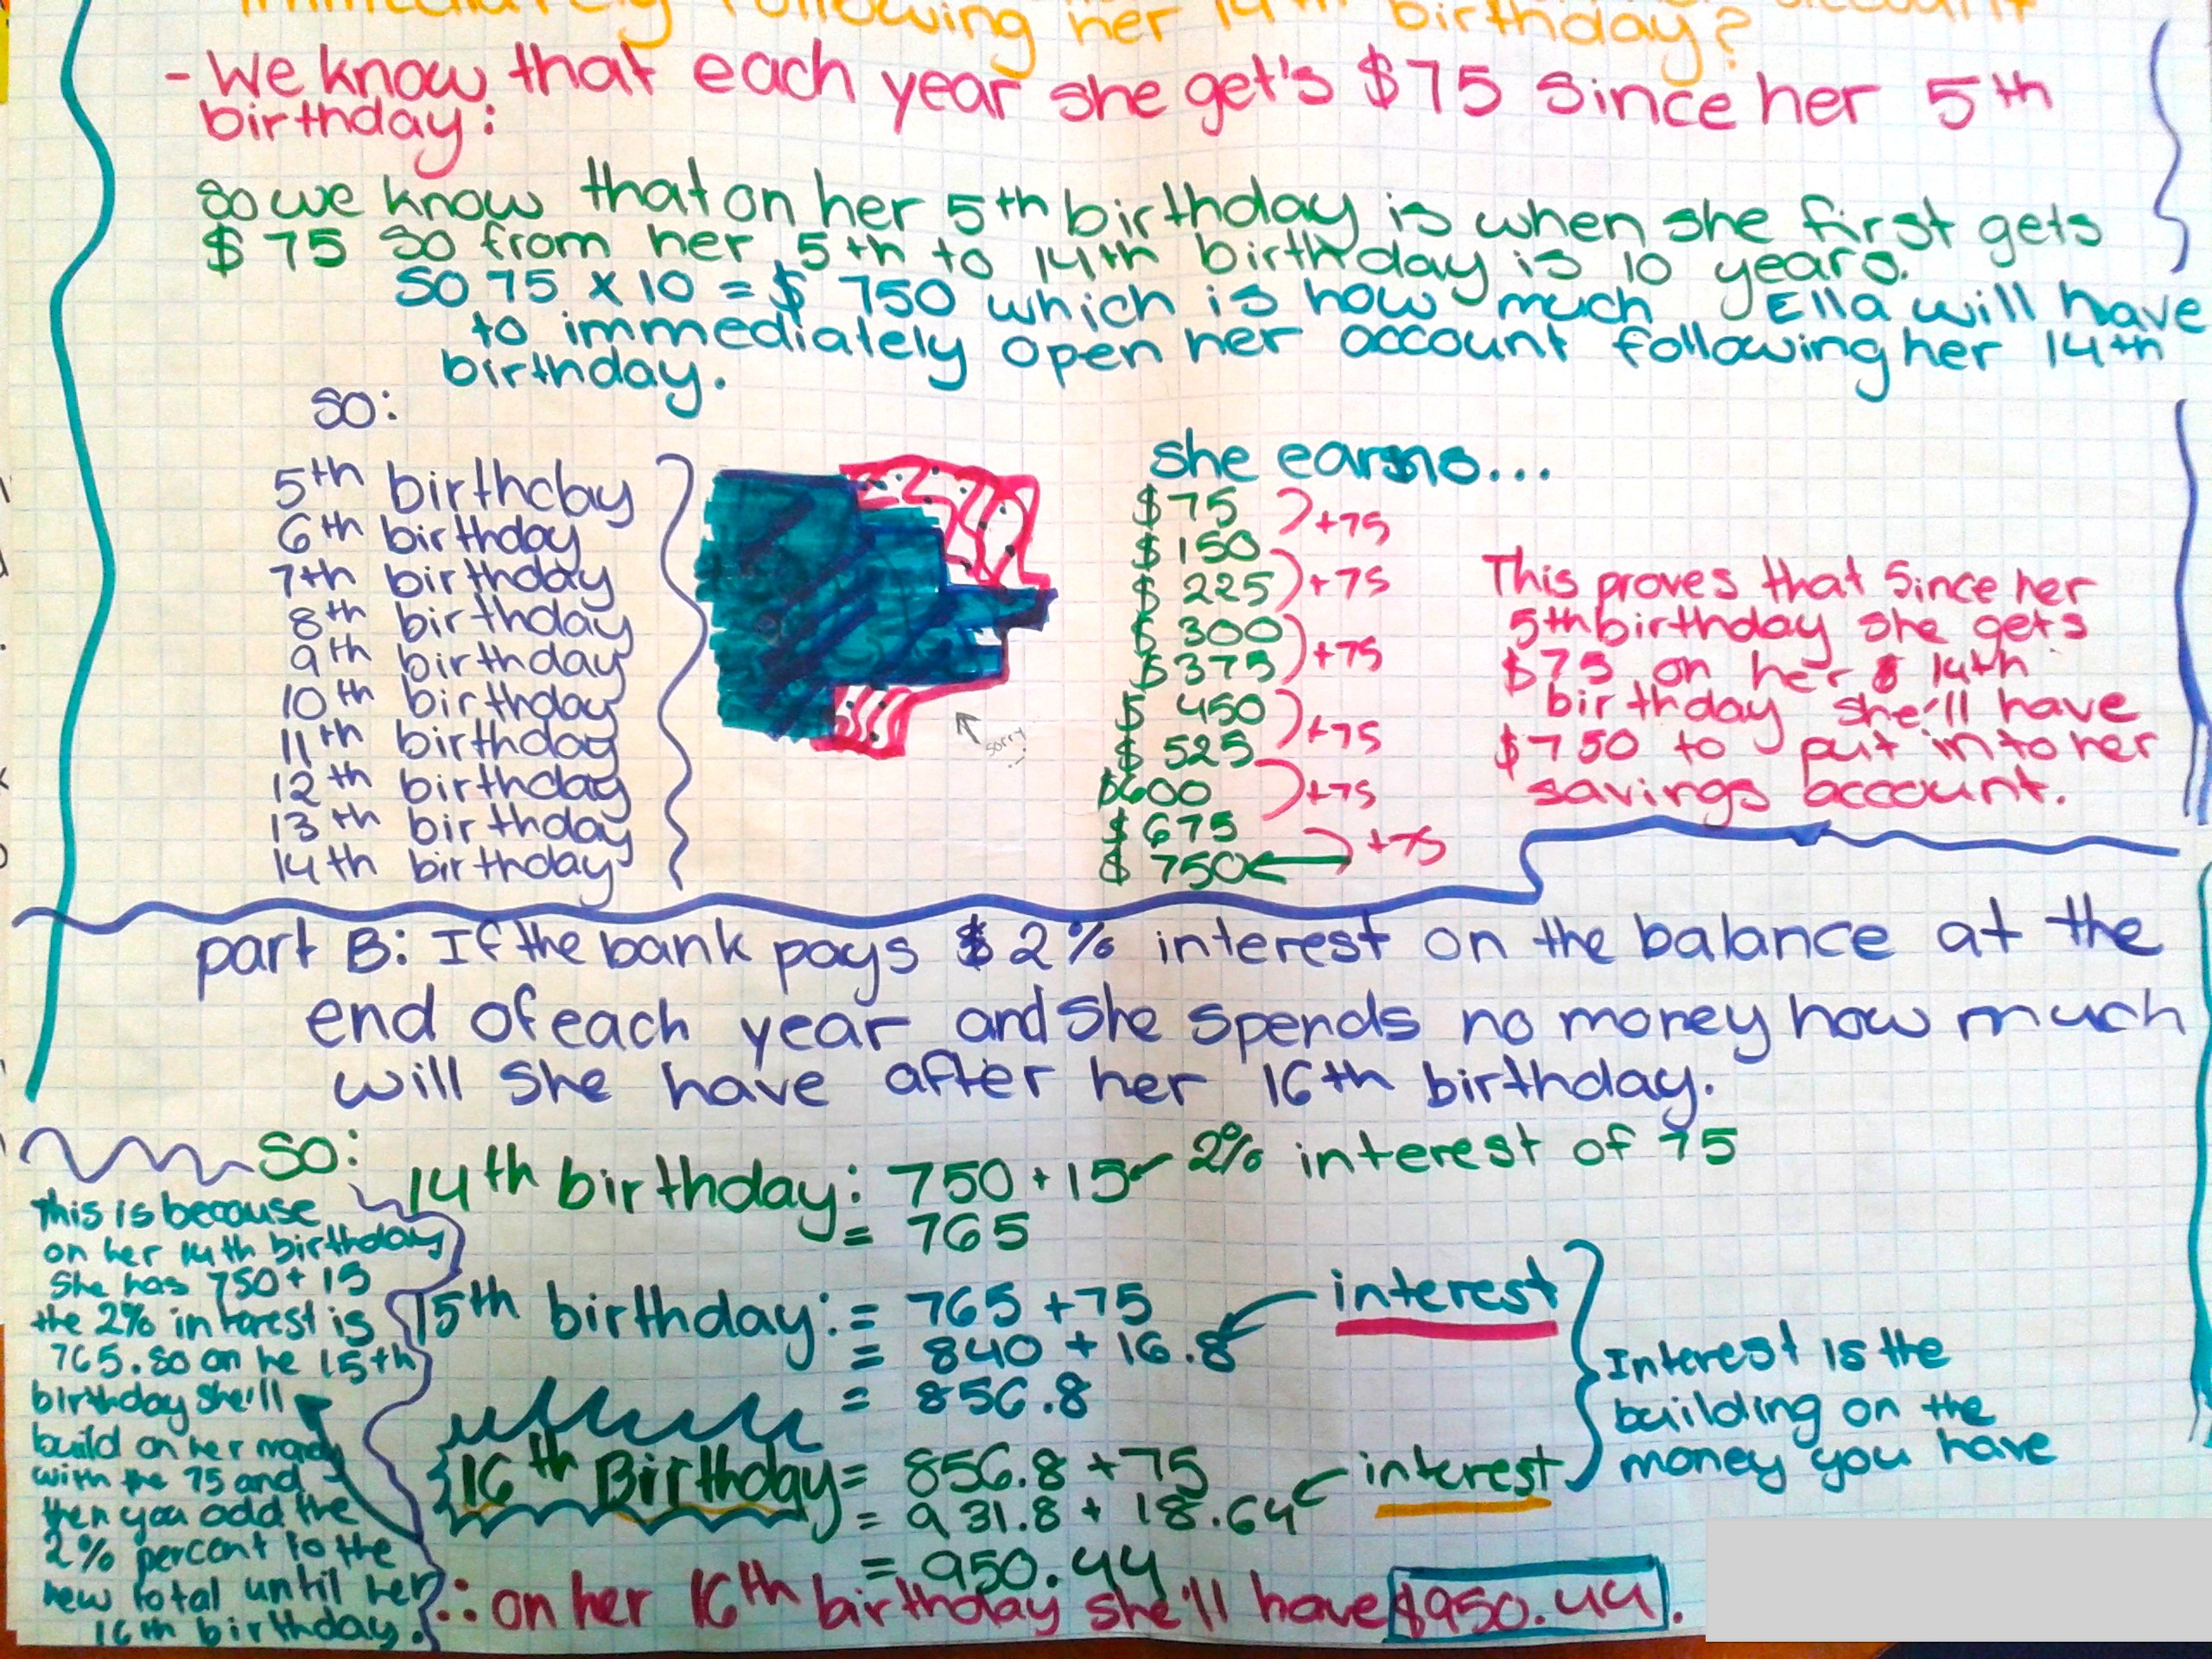 immediately following her 14th birthday? account
- We know that each year she get's $75 since her 5th
birthday:
so we know that on her 5th birthday is when she first gets
$75 so from her 5th to 14th birthday is 10 years.
So 75 x 10 = $750 which is how much Ella will have
to immediately open her account following her 14th
birthday.
so:
5th birthday
6th birthday
7th birthday
8th birthday
9th birthday
10th birthday
11th birthday
12th birthday
13th birthday
14th birthday
sorry !
she earns...
$75
$150
$225
$300
$375
$450
$525
$600
$675
$750
+75
+75
+75
+75
+75
+75
This proves that since her
5th birthday she gets
$75 on her 14th
birthday she'll have
$750 to put into her
savings account.
part B: If the bank pays 2% interest on the balance at the
end of each year and she spends no money how much
will she have after her 16th birthday.
so:
14th birthday: 750 + 15 2% interest of 75
= 765
15th birthday: = 765 + 75
= 840 + 16.8 interest
= 856.8
16th Birthday = 856.8 + 75
= 931.8 + 18.64 interest
= 950.44
Interest is the
building on the
money you have
This is because
on her 14th birthday
She has 750 + 15
the 2% interest is
765. so on he 15th
birthday she'll
build on her money
with the 75 and
then you add the
2% percent to the
new total until her
16th birthday.
∴ on her 16th birthday she'll have $950.44.